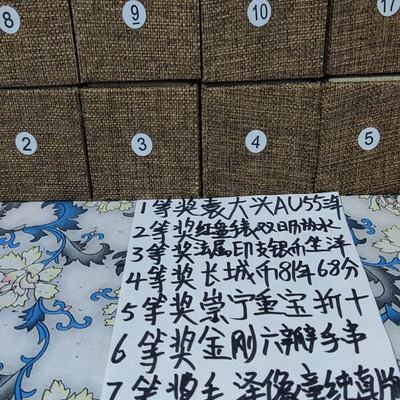 8 9 10 17
2 3 4 5
1等奖袁大头AU55三年
2等奖红盘手表双日历防水
3等奖法属印支银币坐洋
4等奖长城币81年68分
5等奖崇宁重宝折十
6等奖金刚六瓣手串
7等奖毛泽像章纯真版